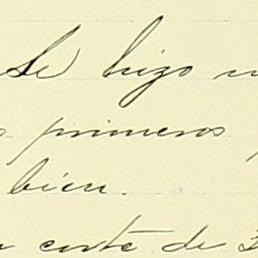 Se hizo
primeros
bien.
corte de